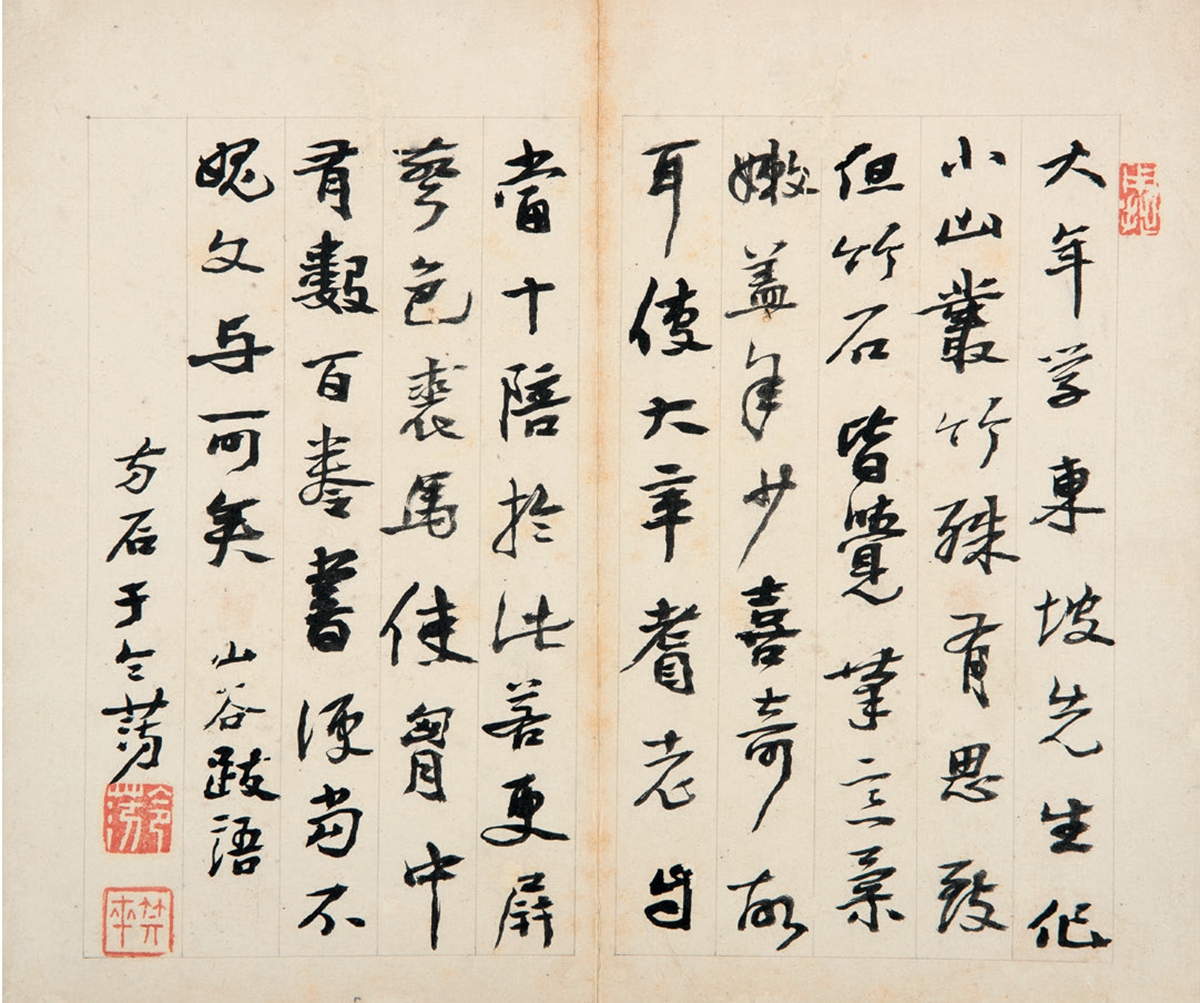 大年学東坡先生作
小山叢竹殊有思致
但竹石皆覺筆意柔
嫩蓋年少喜奇故
耳使大年耆老自
當十陪於此若更屏
聲色裘馬使胷中
有數百卷書便當不
媿文与可矣 山谷跋語
方石于令淓
令淓